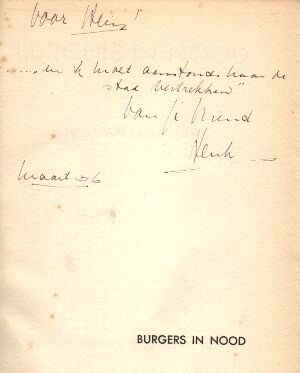 voor Hein!
"....en ik moet aanstonds naar de
stad vertrekken"
van je vriend
Henk
maart 36
BURGERS IN NOOD